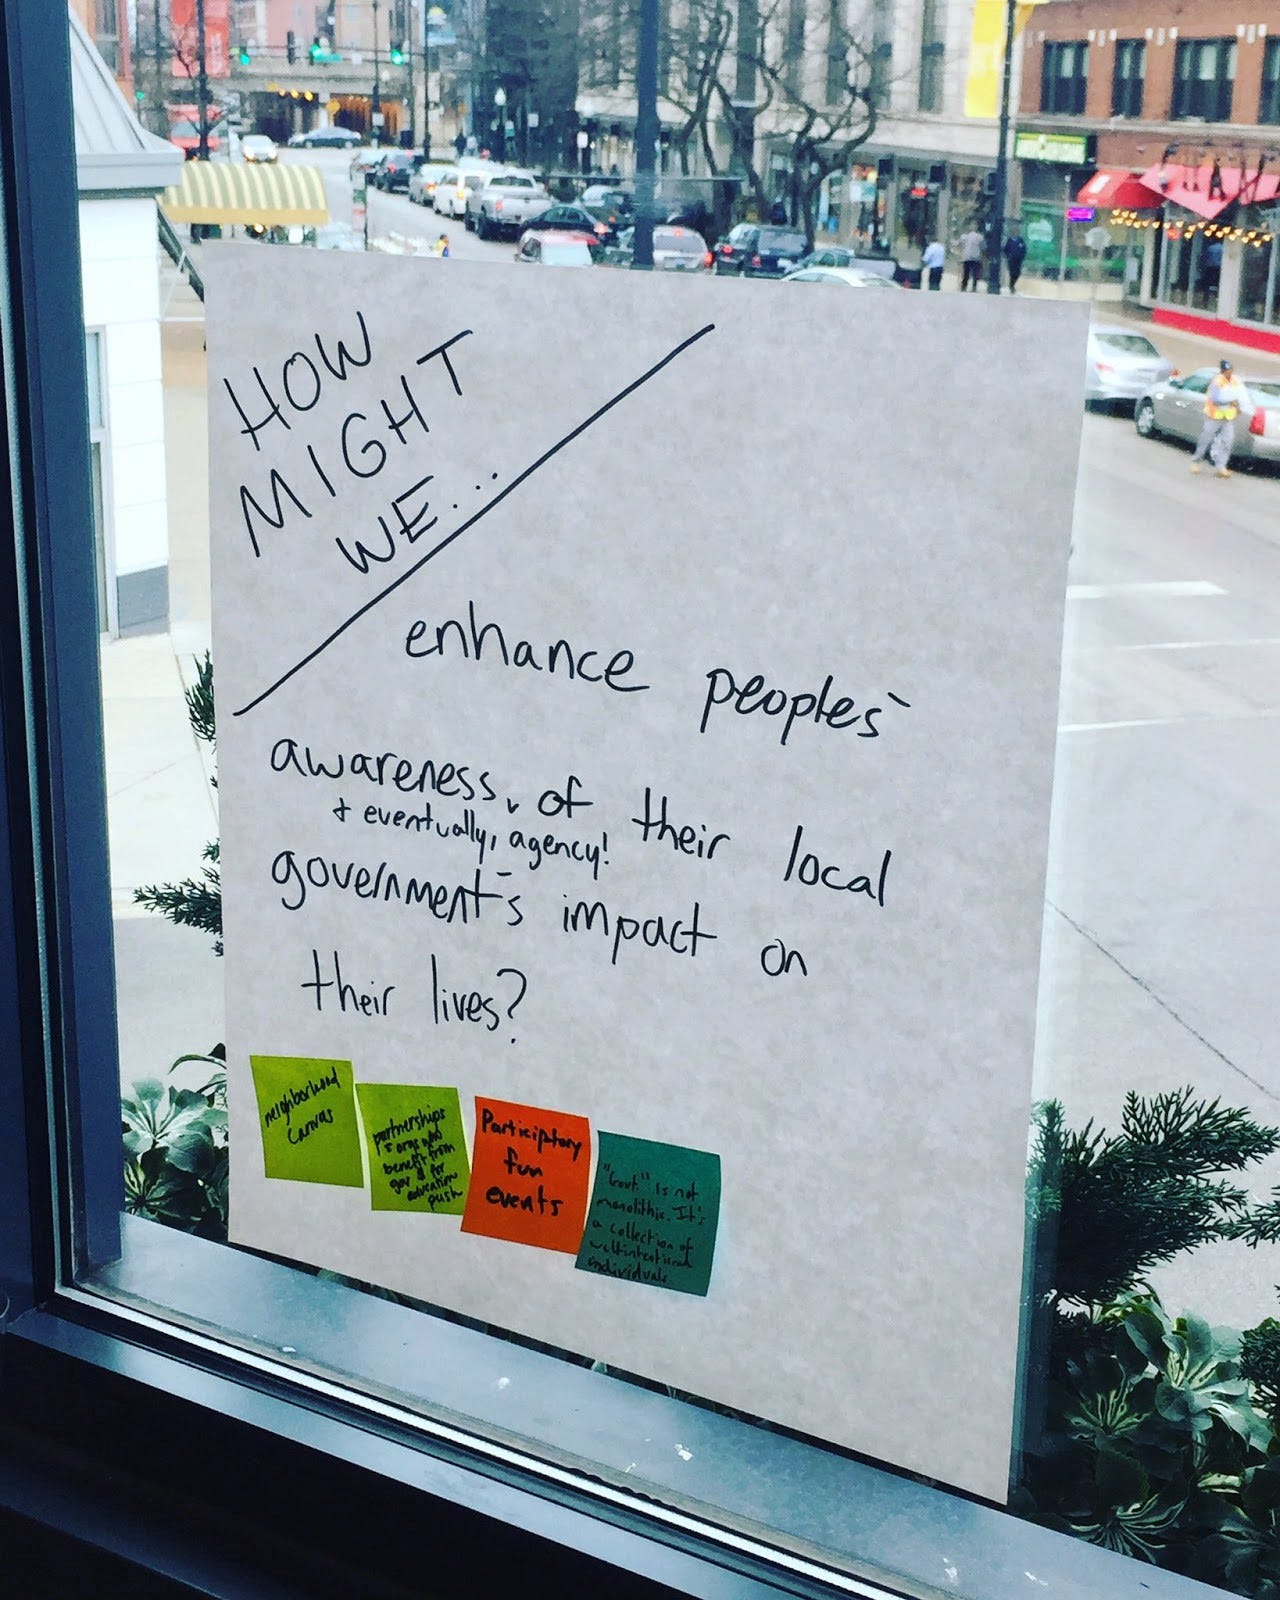 HOW
MIGHT
WE...
enhance peoples'
awareness of their local
+ eventually, agency!
government's impact on
their lives?
neighborhood
canvas
partnerships
orgs who
benefit from
gov for
education
push
Participtory
fun
events
"Govt." is not
monolithic. It's
a collection of
individuals.